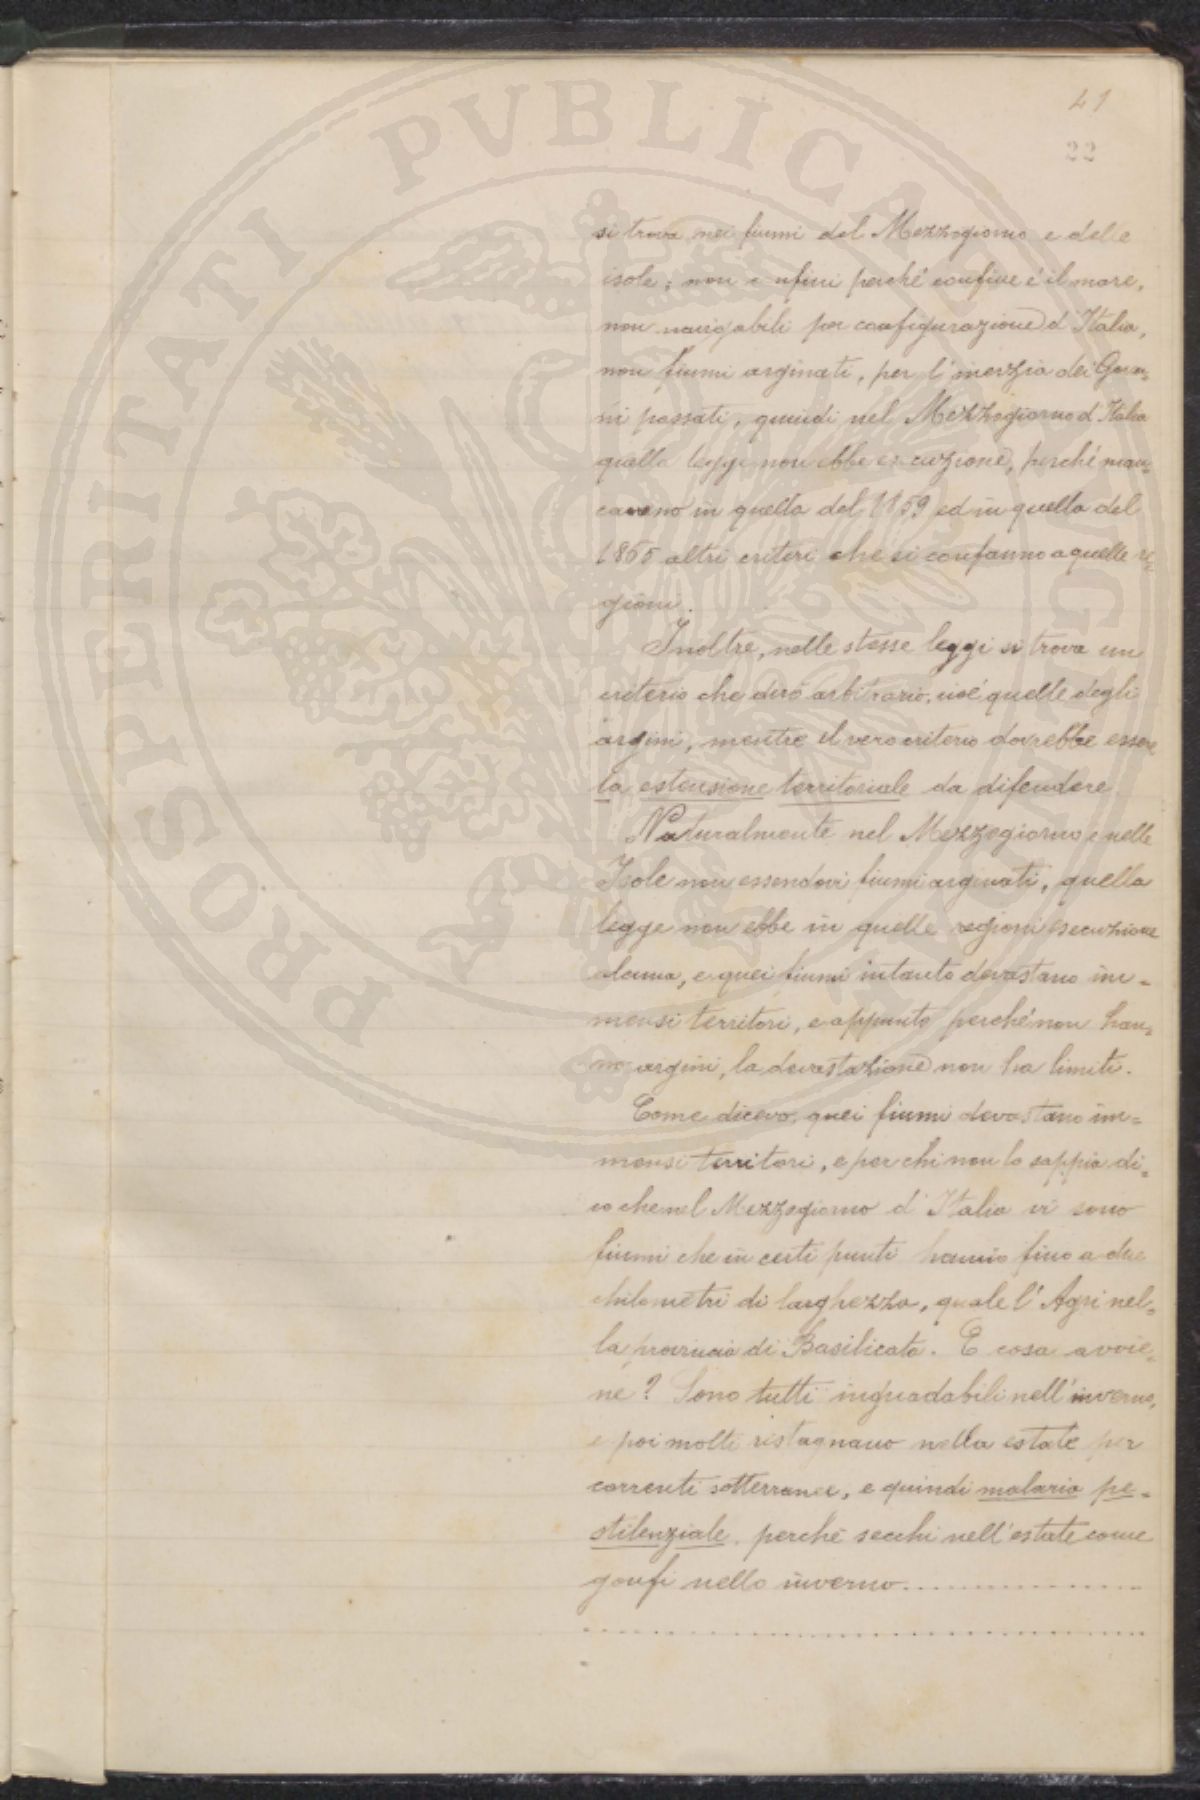 41
22
PROSPERITATI PVBLICAE
si trova nei fiumi del Mezzogiorno e delle
isole; non confini perché confine é il mare,
non navigabili per configurazione d'Italia,
non fiumi arginati, per l'inerzia dei Gover=
ni passati, quindi nel Mezzogiorno d'Italia
quella legge non ebbe esecuzione, perché man=
cavano in quella del 1859 ed in quella del
1865 altri criteri che si confanno a quelle re=
gioni.
Inoltre, nelle stesse leggi si trova un
criterio che dirò arbitrario, cioé quelle degli
argini, mentre il vero criterio dovrebbe essere
la estensione territoriale da difendere
Naturalmente nel Mezzogiorno e nelle
Isole non essendovi fiumi arginati, quella
legge non ebbe in quelle regioni esecuzione
alcuna, e quei fiumi intanto devastano im=
mensi territori, e appunto perché non han=
no argini, la devastazione non ha limiti.
Come dicevo, quei fiumi devastano im=
mensi territori, e per chi non lo sappia di=
co che nel Mezzogiorno d'Italia vi sono
fiumi che in certi punti hanno fino a due
chilometri di larghezza, quale l'Agri nel=
la provincia di Basilicata. E cosa avvie=
ne? Sono tutti inguadabili nell'inverno,
e poi molti ristagnano nella estate per
correnti sotterranee, e quindi malaria pe=
stilenziale, perché secchi nell'estate come
gonfi nello inverno................
................................